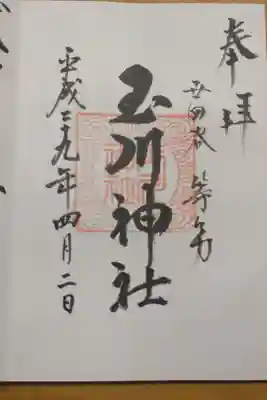 奉拝
世田谷 等々力
玉川神社
平成二九年四月二日